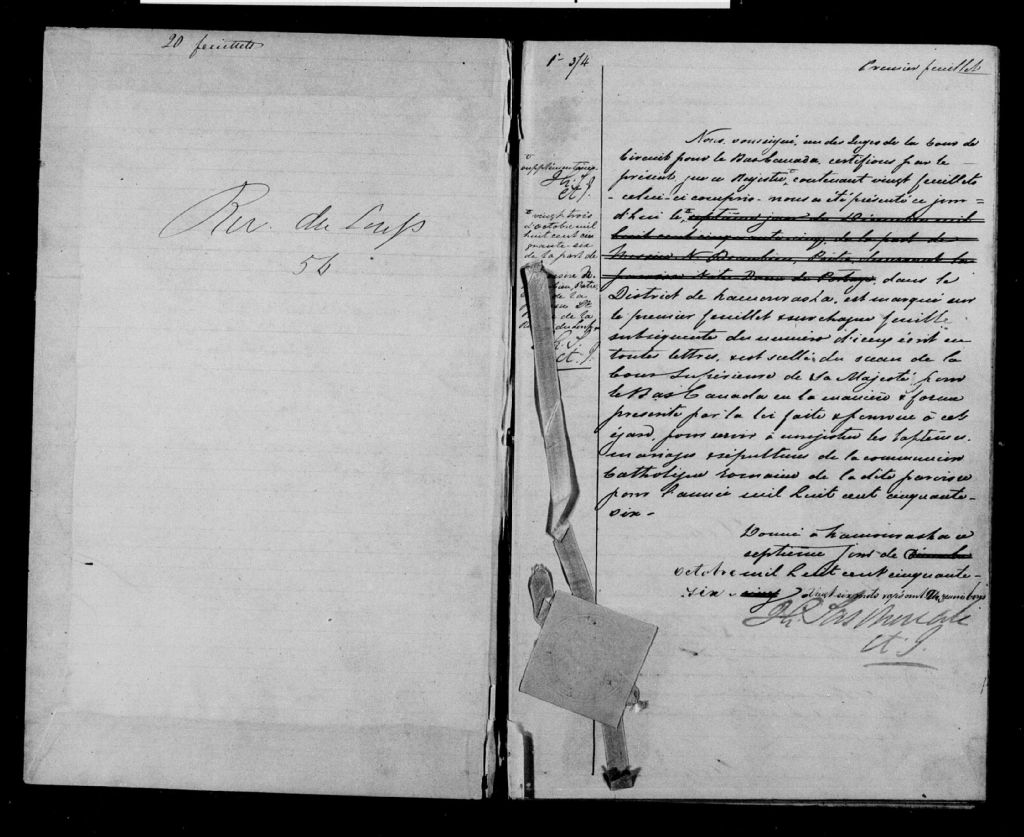 20 feuillets
Riv. du Loup
56
1r 3/4
Premier feuillet
supplémentaire
Ct. J.
vingt trois
d'octobre mil
huit cent cin
quante-six
de la part de
de la
de la
Ct. J.
Nous, soussigné, un des Juges de la Cour de
Circuit pour le Bas Canada, certifions par le
présent que ce Registre, contenant vingt feuillets
- celui-ci compris - nous a été présenté ce jour
d'hui le septième jour de Décembre mil
huit cent cinquante cinq, de la part de
Messire N. Beaubien, Prêtre,
paroisse Notre Dame du Portage, dans le
District de Kamouraska, est marqué sur
le premier feuillet & sur chaque feuillet
subséquent du numéro d'iceux écrit en
toutes lettres, & est scellé du sceau de la
Cour Supérieure de Sa Majesté pour
le Bas Canada en la manière & forme
par la loi faite & pourvue à cet
égard, pour servir à enregistrer les baptêmes,
mariages & sépultures de la communion
Catholique Romaine de la dite paroisse
pour l'année mil huit cent cinquante-
six -
Donné à Kamouraska ce
septième jour de
octobre mil huit cent cinquante-
six cinq
Ct. J.